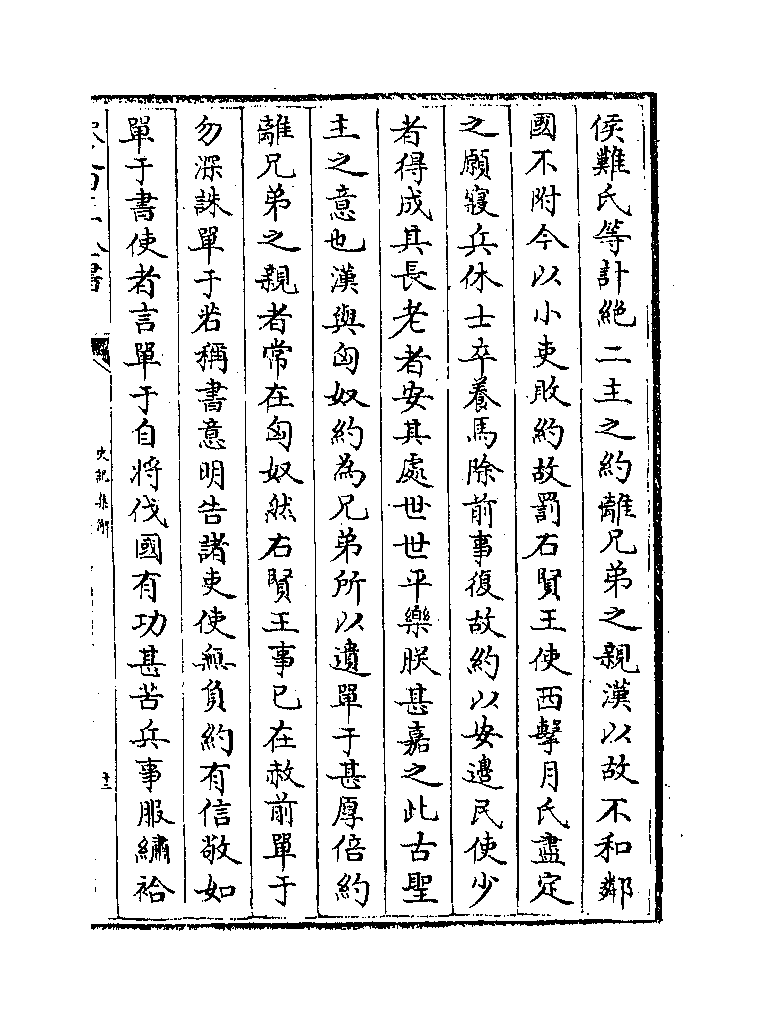 侯難氏等計絶二主之約離兄弟之親漢以故不和鄰
國不附今以小吏敗約故罰右賢王使西擊月氏盡定
之願寢兵休士卒養馬除前事復故約以安邊民使少
者得成其長老者安其處世世平樂朕甚嘉之此古聖
主之意也漢與匈奴約為兄弟所以遺單于甚厚倍約
離兄弟之親者常在匈奴然右賢王事已在赦前單于
勿深誅單于若稱書意明告諸吏使無負約有信敬如
單于書使者言單于自將伐國有功甚苦兵事服繡袷
史記集解
十三